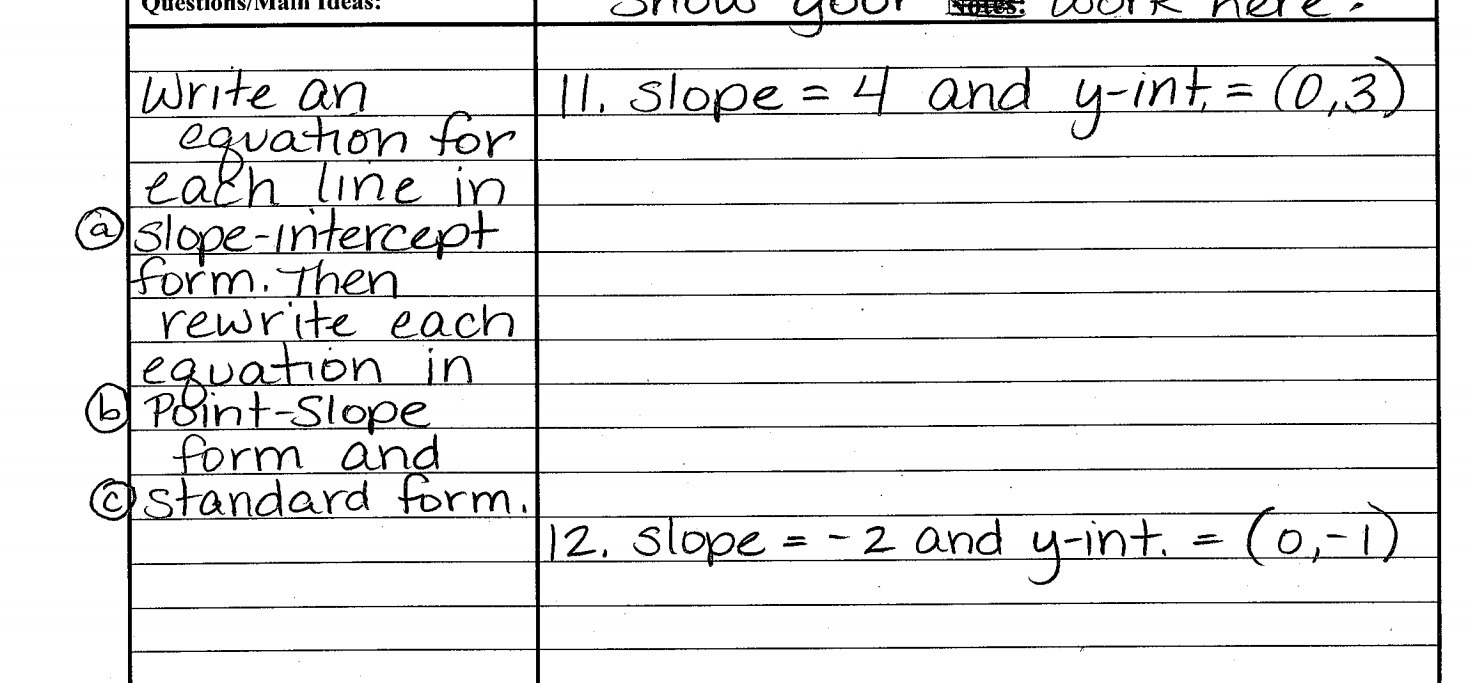 Questions/Main Ideas:
Show your Notes: work here.
Write an
equation for
each line in
(a) slope-intercept
form. Then
rewrite each
equation in
(b) Point-Slope
form and
(c) standard form.
11. slope = 4 and y-int. = (0,3)
12. slope = -2 and y-int. = (0,-1)